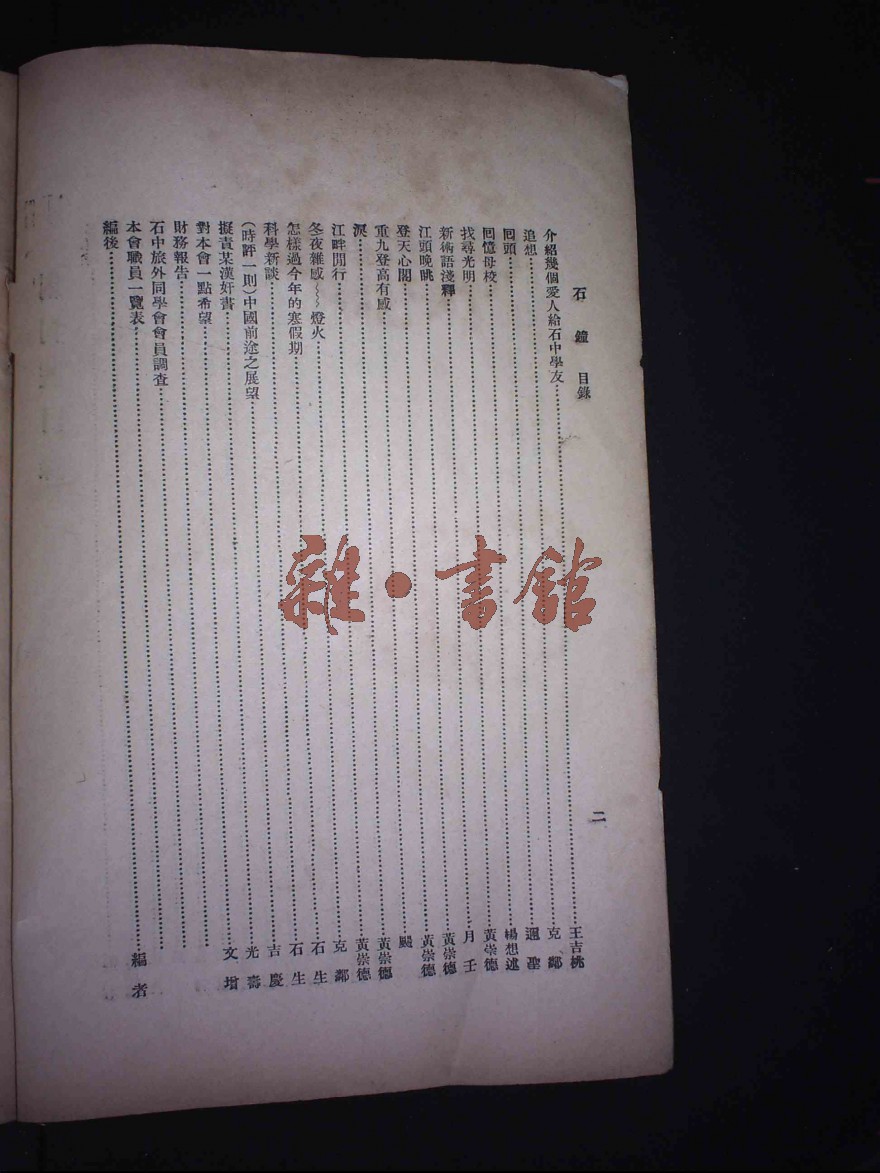 石鐘 目錄
二
介紹幾個愛人給石中學友⋯⋯王吉桃
追想⋯⋯克
回頭⋯⋯聖
回憶母校⋯⋯楊想述
找尋光明⋯⋯黃崇德
新術語淺釋⋯⋯月壬
江頭晚眺⋯⋯黃崇德
登天心閣⋯⋯黃崇德
重九登高有感⋯⋯颺
淚⋯⋯黃崇德
江畔閒行⋯⋯黃崇德
冬夜雜感~~~燈火⋯⋯克
怎樣過今年的寒假期⋯⋯石生
科學新談⋯⋯石生
(時評一則)中國前途之展望⋯⋯吉慶
擬責某漢奸書⋯⋯光壽
對本會一點希望⋯⋯文增
財務報告⋯⋯
石中旅外同學會會員調查⋯⋯
本會職員一覽表⋯⋯
編後⋯⋯編者
雜·書館